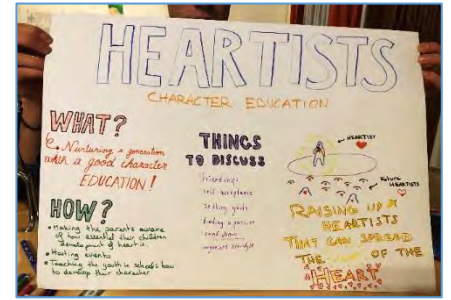 HEARTISTS
CHARACTER EDUCATION
WHAT?
Nurturing a generation
with a good character
EDUCATION!
HOW?
• Making the parents aware
of how essential their children
development of heart is.
• Hosting events
• Teaching the youth in schools how
to develop their character
THINGS
TO DISCUSS
friendships
self-acceptance
setting goals
finding a passion
HEARTIST
Future
HEARTISTS
RAISING UP
HEARTISTS
THAT CAN SPREAD
THE OF THE
HEART